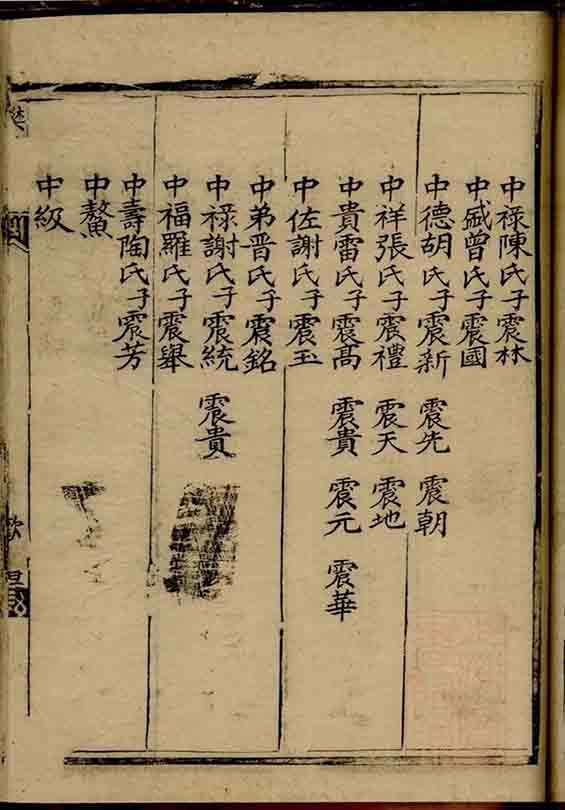 中禄陳氏子震林
中戚曾氏子震國
中德胡氏子震新 震先 震朝
中祥張氏子震禮 震天 震地
中貴雷氏子震髙 震貴 震元 震華
中佐謝氏子震玉
中弟晋氏子震銘
中禄謝氏子震統 震貴
中福羅氏子震舉
中壽陶氏子震芳
中鰲
中級